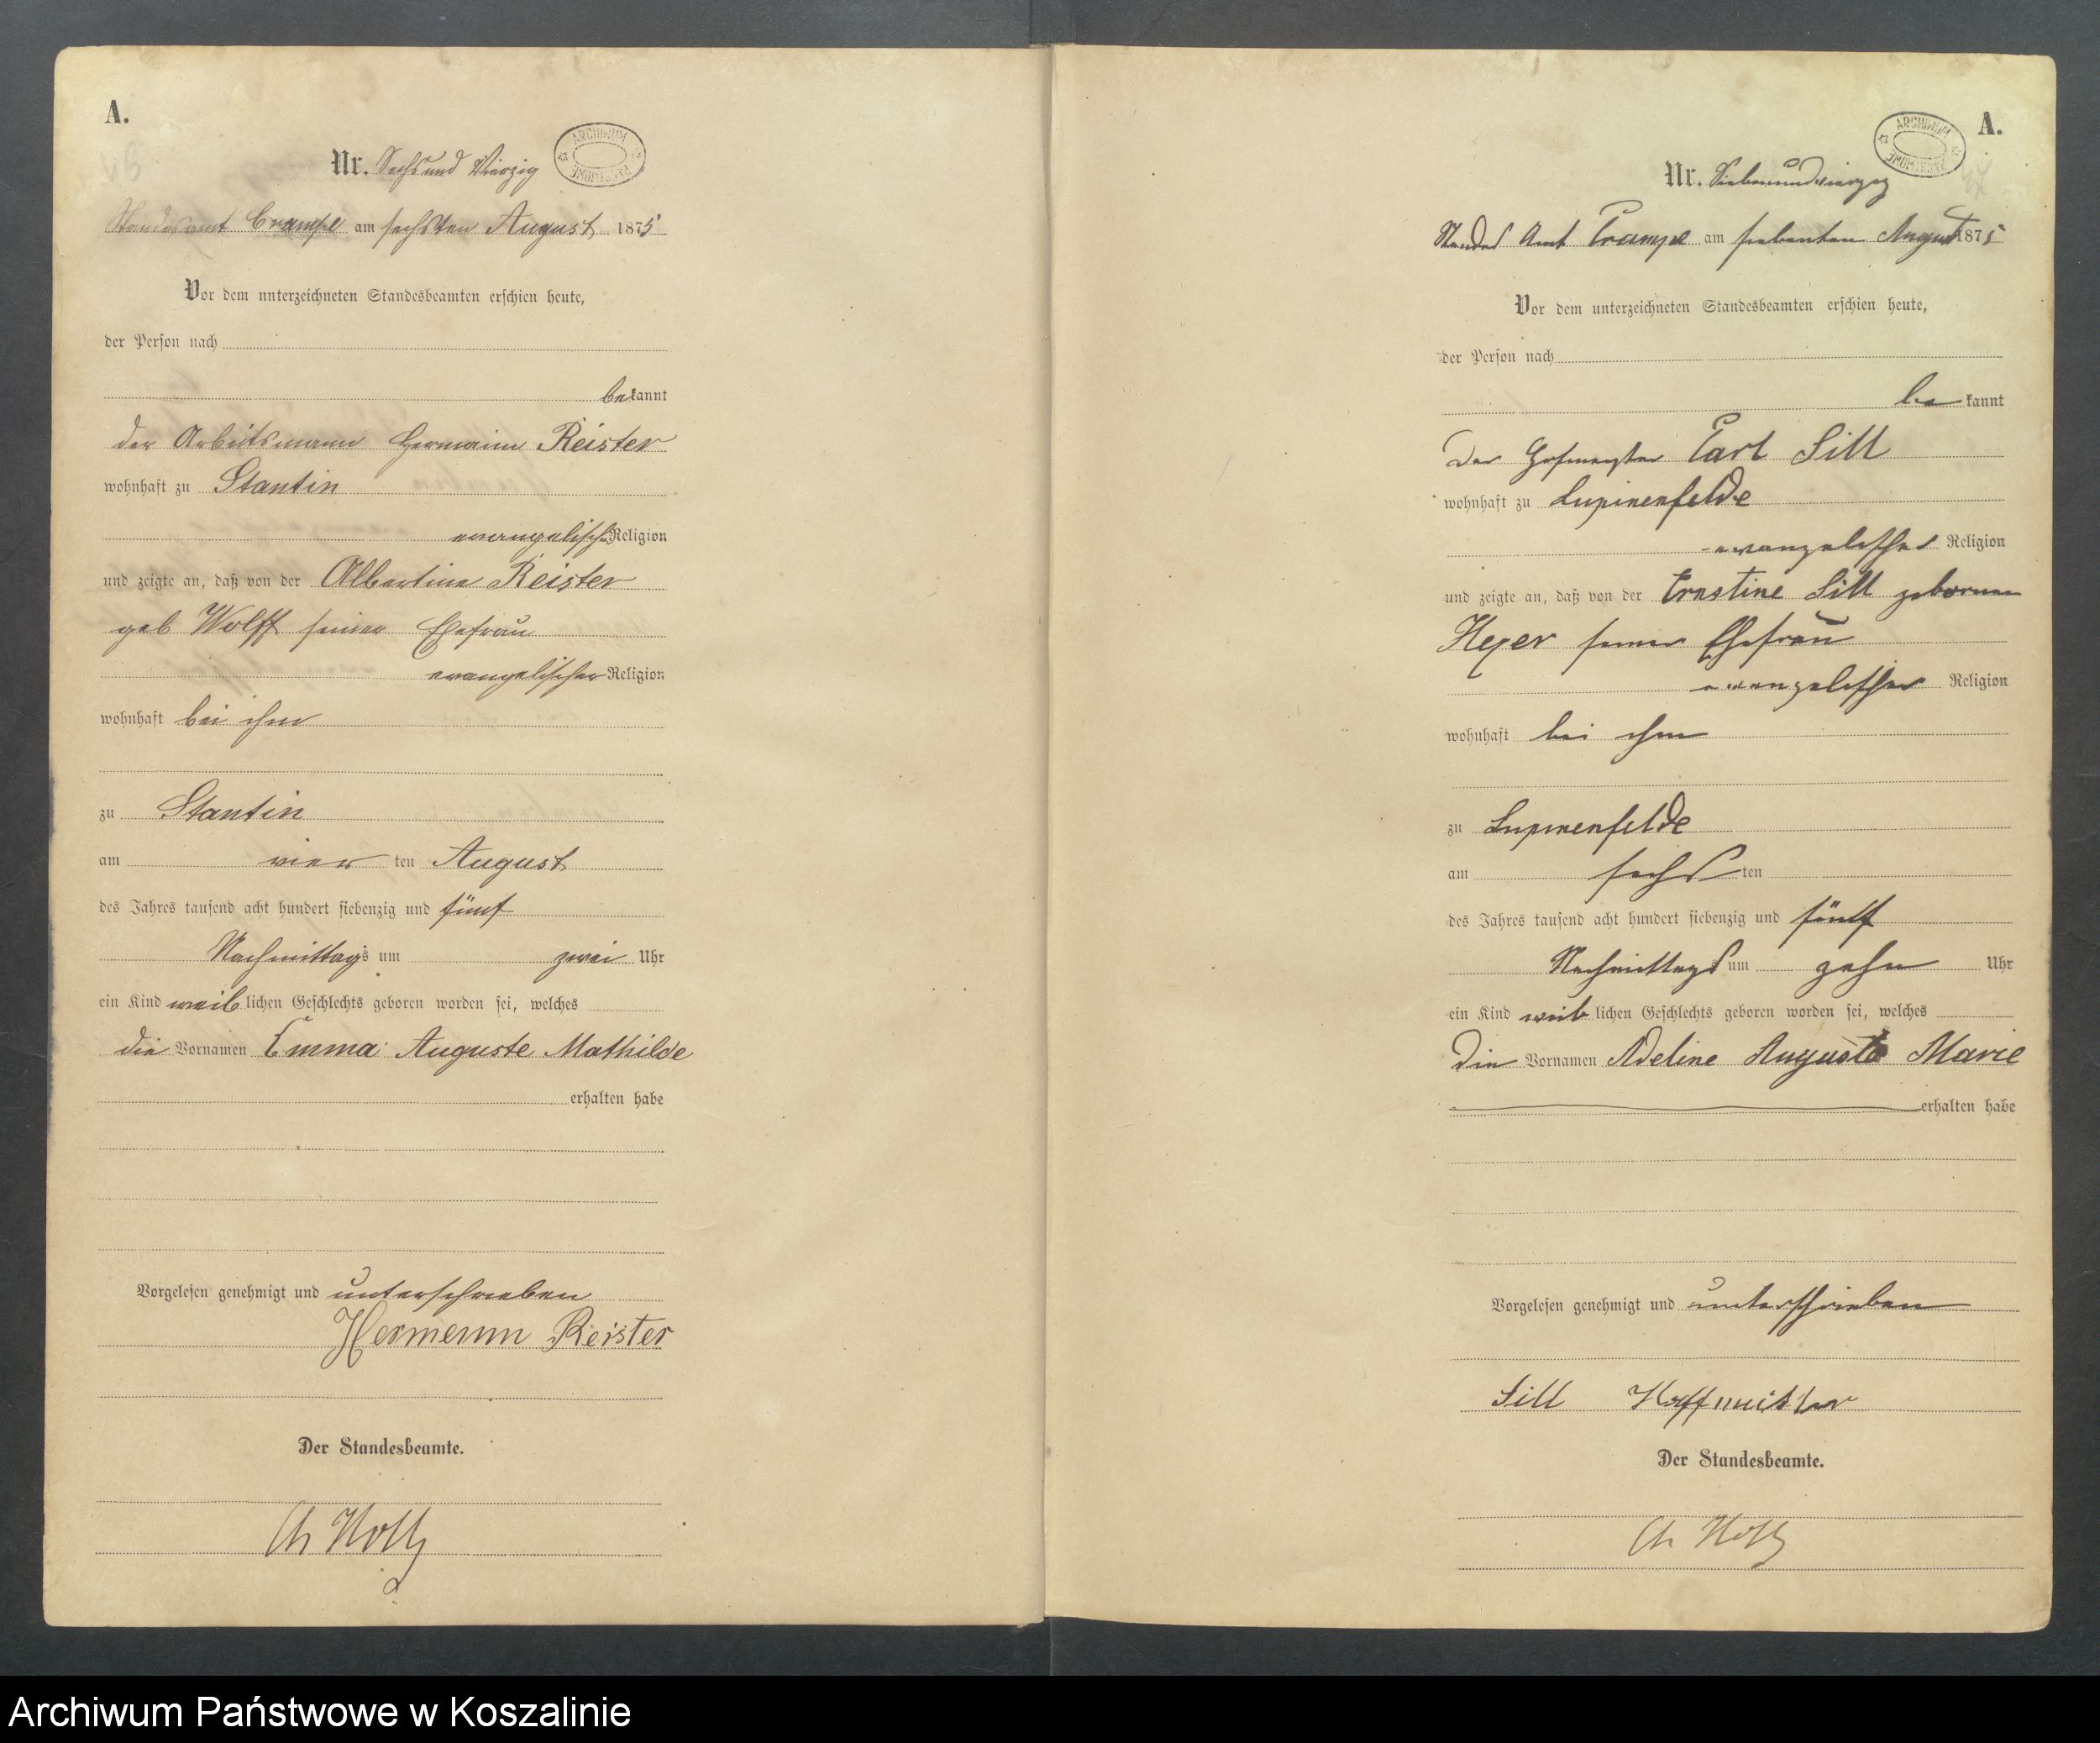 A.
Nr. Sechs und Vierzig
ARCHIWUM PAŃSTWOWE
Standesamt Crampe am sechsten August 1875
Vor dem unterzeichneten Standesbeamten erschien heute,
der Person nach
bekannt
der Arbeitsmann Hermann Reister
wohnhaft zu Stantin
evangelischer Religion
und zeigte an, daß von der Albertine Reister
geb Wolff seiner Ehefrau
evangelischer Religion
wohnhaft bei ihm
zu Stantin
am vier ten August
des Jahres tausend acht hundert siebenzig und fünf
Nachmittags um zwei Uhr
ein Kind weiblichen Geschlechts geboren worden sei, welches
die Vornamen Emma Auguste Mathilde
erhalten habe
Vorgelesen genehmigt und unterschrieben
Hermann Reister
Der Standesbeamte.
A.
ARCHIWUM PAŃSTWOWE
Nr. Siebenundvierzig
Standes Amt Crampe am siebenten August 1875
Vor dem unterzeichneten Standesbeamten erschien heute,
der Person nach
be kannt
Der Hofmeister Carl Sill
wohnhaft zu Lupinenfelde
evangelischer Religion
und zeigte an, daß von der Ernstine Sill geborene
Heyer seiner Ehefrau
evangelischer Religion
wohnhaft bei ihm
zu Lupinenfelde
am sechs ten
des Jahres tausend acht hundert siebenzig und fünf
Nachmittags um zehn Uhr
ein Kind weib lichen Geschlechts geboren worden sei, welches
Die Vornamen Adeline Auguste Marie
erhalten habe
Vorgelesen genehmigt und unterschrieben
Sill Hoffmeister
Der Standesbeamte.
Archiwum Państwowe w Koszalinie